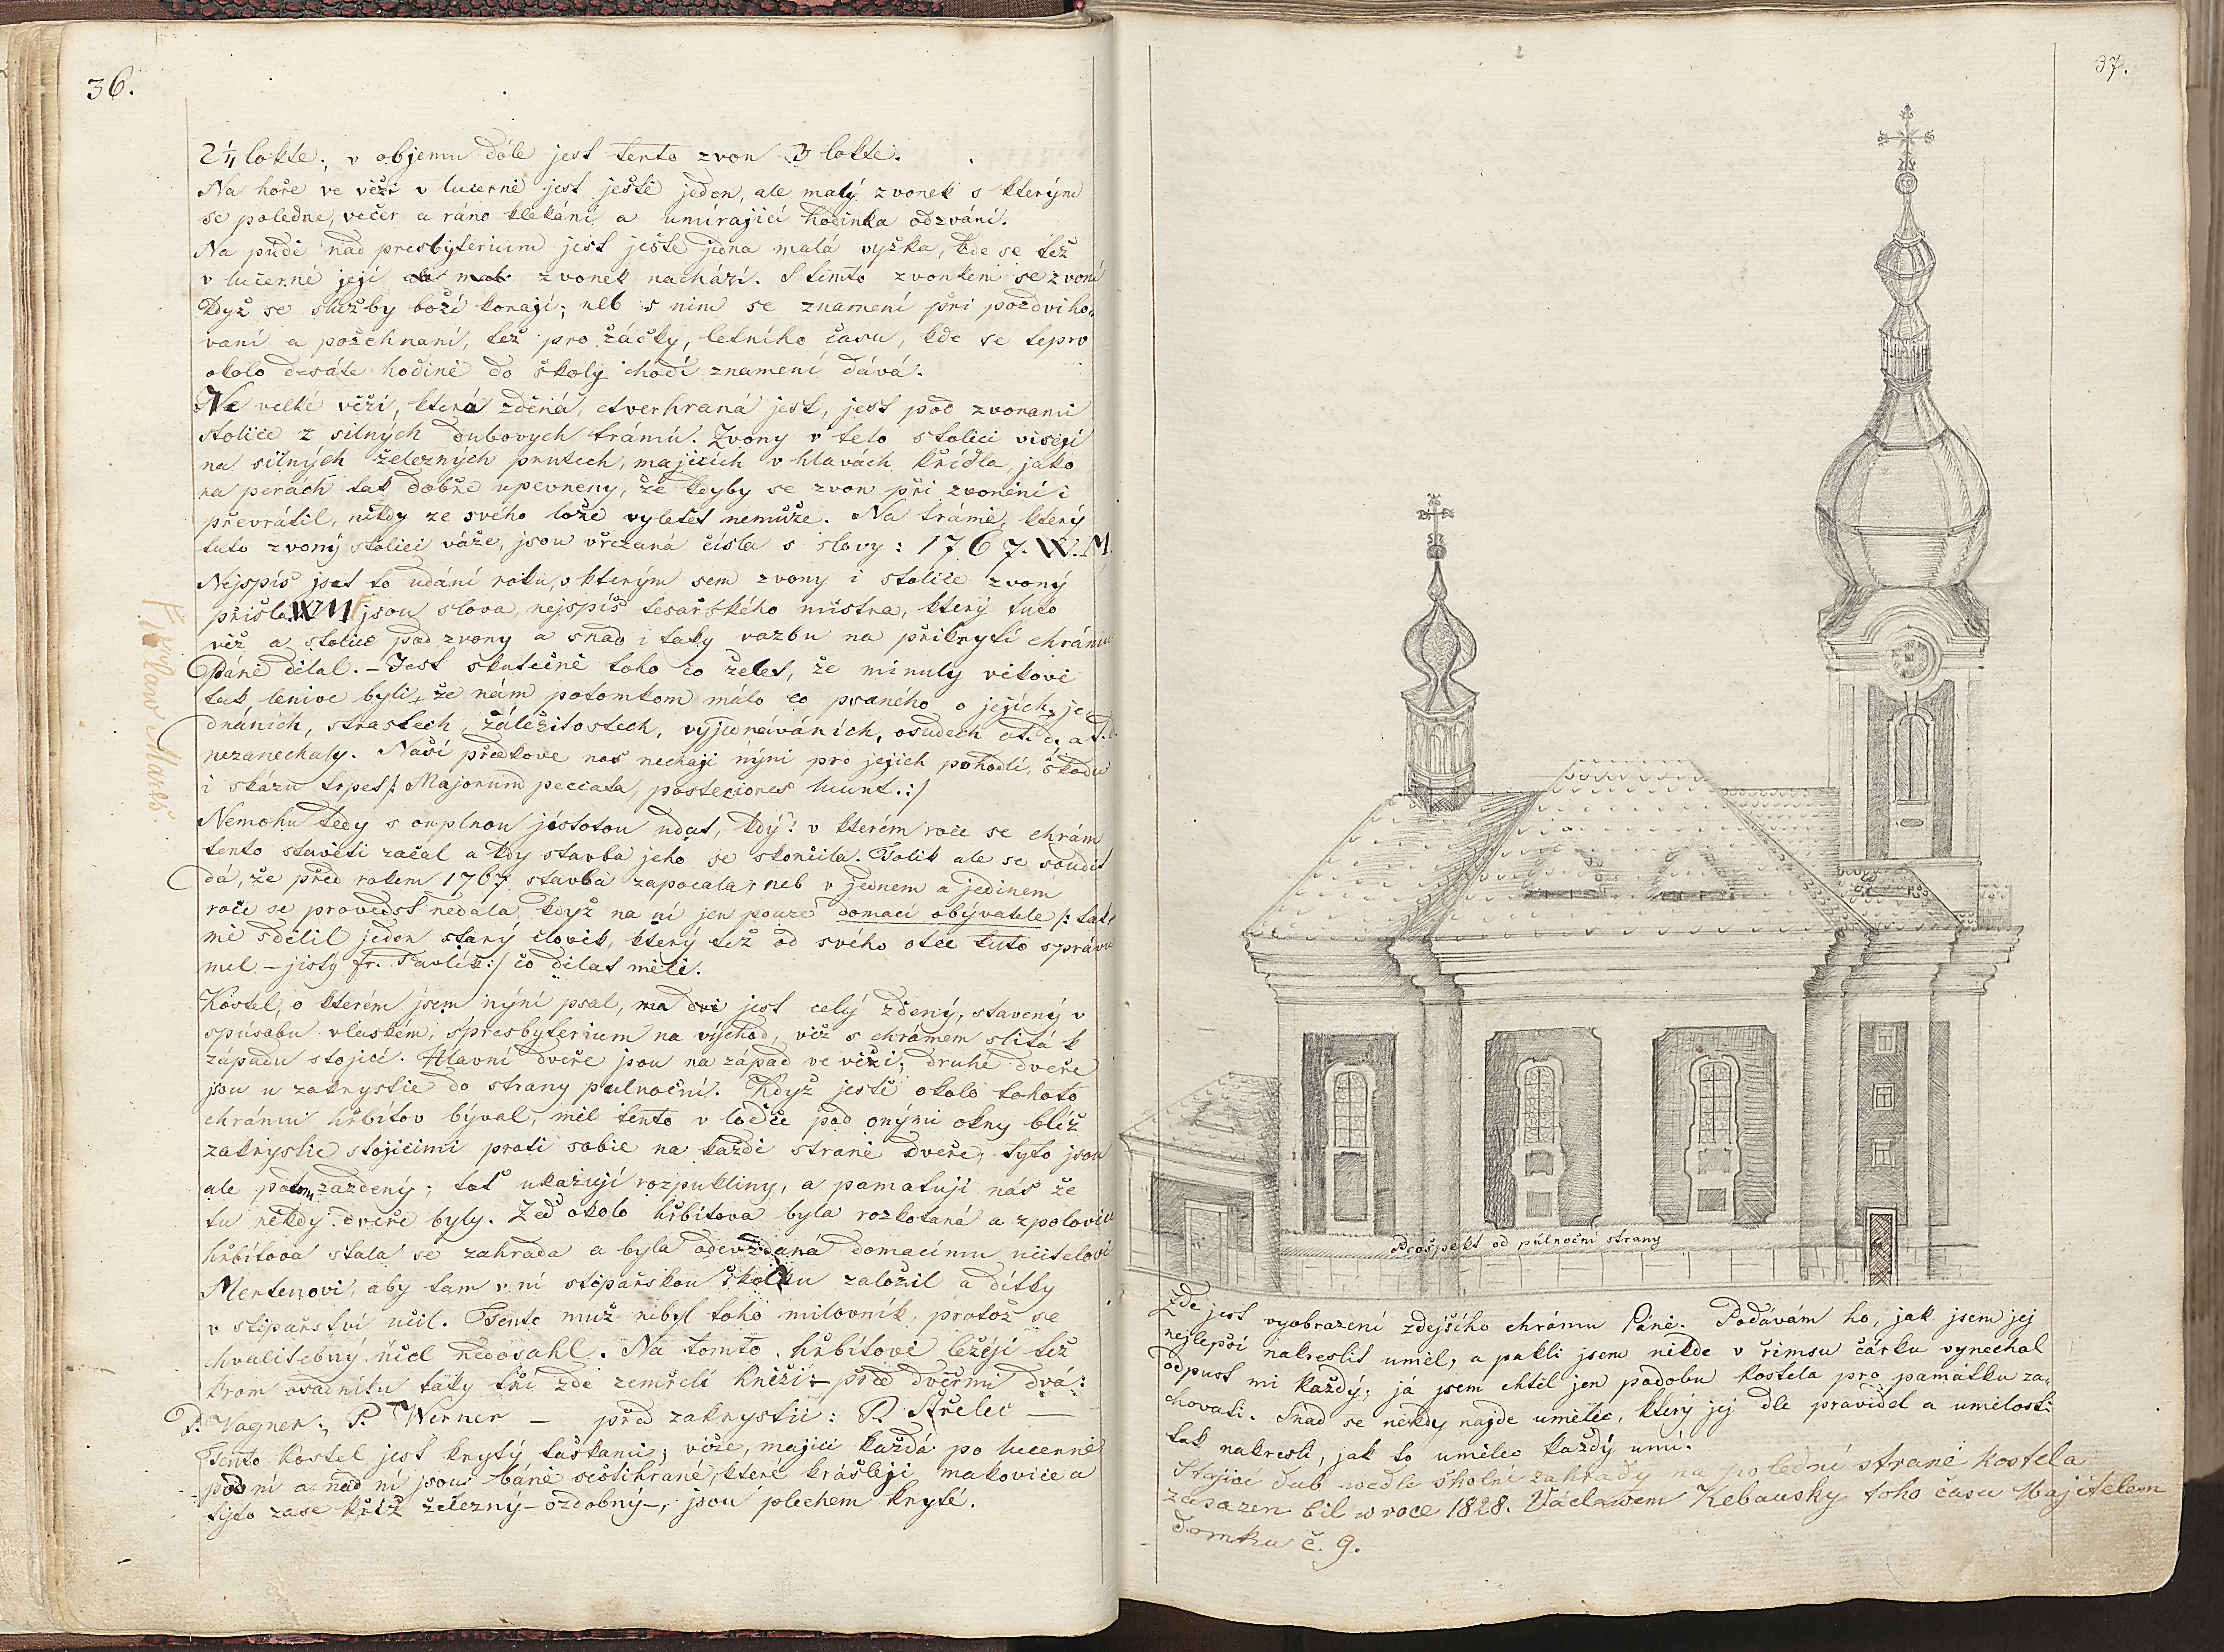 36.
2 1/4 lokte; v objemu dole jest tento zvon 3 lokte.
Na hoře ve věži v lucerně jest ještě jeden, ale malý zvonek s kterým
se poledne, večer a ráno klekání a umírajicí hodinka odzvání.
Na půdě nad presbyterium jest ješte jedna malá vyžka, kde se též
v lucerně její zvonek nachází. S tímto zvonkem se zvoní
když se služby boží konají; neb s nim se znamení při pozdviho„
vaní a požehnaní, též pro žáčky, letního času, kde se teprv
okolo desáte hodině do školy chodí znamení dává.
Ve velké věži, která zděná, čtverhraná jest, jest pod zvonami
stolice z silných dubovych trámú. Zvony v teto stolici visejí
na silných železných prutech, majících v hlavách křídla, jako
na perách tak dobře upevneny, že kdyby se zvon při zvonění i
převrátil, nikdy ze svého lože vyletět nemůže. Na trámě, který
tuto zvoný stolici váže, jsou vřezaná čísla s slovy: 1767. W. M.
Nejspíš jest to udání roku, s kterým sem zvony i stolice zvoný
přišla. WM jsou slova, nejspíš tesařského mistra, který tuto
věž a stolici pod zvony a snad i taky vazbu na přikrytí chrámu
Páně dělal. – Jest skutečně toho co želet, že minuly věkové
tak lenivé byli, že nám potomkom málo co psaného o jejich je„
dnáních, strastech, záležitostech, vyjednáváních, osudech at. d. a t. d.
nezanechaly. Naší předkove nas nechají nýní pro jejich pohodlí, škodu
i skázu trpet /: Majorum peccata, posteriores luunt. :/
Nemohu tedy s ouplnou jistotou udat, kdý! v kterém roce se chrám
tento stavěti začal a kdy stavba jeho se skončila. Tolik ale se soudit
dá, že před rokem 1767 stavba započala, neb v jednem a jedinem
roce se provedst nedala, když na ní jen pouze domací obývatele /: tak
mě sdělil jeden starý človék, který též od svého otce tuto správu
mel – jistý fr. Pavlík :/ co dělat měli.
Kostel, o kterém jsem nýní psal, jest celý zděný, stavený v
spúsobu vlaském, s presbyterium na východ, věž s chrámem slitá k
západu stojicí. Hlavní dveře jsou na západ ve věži; druhé dveře
jsou u zakrystie do strany pulnoční. Když ještě okolo tohoto
chrámu hřbitov býval, měl tento v loďce pod onými okny blíž
zakrystie stojícimi proti sobie na každé straně dveře; tyto jsou
ale potom zazdený; toť ukazují rozpukliny, a pamatují nás že
tu někdy dveře byly. Zeď okolo hřbitova byla rozkotaná a z polovice
hřbitova stala se zahrada a byla odevzdaná domacímu učitelovi
Mertenovi, aby tam v ní stěpařskou školku založil a dítky
v stěpařství učil. Tento muž nebyl toho milovník, protož se
chvalitebný účel nedosahl. Na tomto hřbitově leží též
krom osadníku taky tří zde zemřelí kněží: – před dveřmi dvá:
P. Vagner; P. Werner – před zakrystií: P. Střelec –
Tento kostel jest krytý taškami; věže, majicí každá po lucerně
pod ní a nad ní jsou báně sestihrané, které krášleji makovice a
týto zase kříž železný – ozdobný –, jsou plechem kryté.
37.
Prošpekt od půlnoční strany
Zde jest vyobrazení zdejšího chrámu Páně. Podávám ho, jak jsem jej
nejlepší nakreslit uměl, a pakli jsem někde v řimsu čárku vynechal
odpust mi každý; já jsem chtěl jen podobu kostela pro památku za„
chovati. Snad se někdy najde umělec, který jej dle pravidel a umělosti
tak nakreslí, jak to umělec každý umí.
Stojicí dub wedle školní zahrady na polední straně kostela
zasazen bil w roce 1828. Václawem Kebausky toho času Majitelem
domku č. 9.